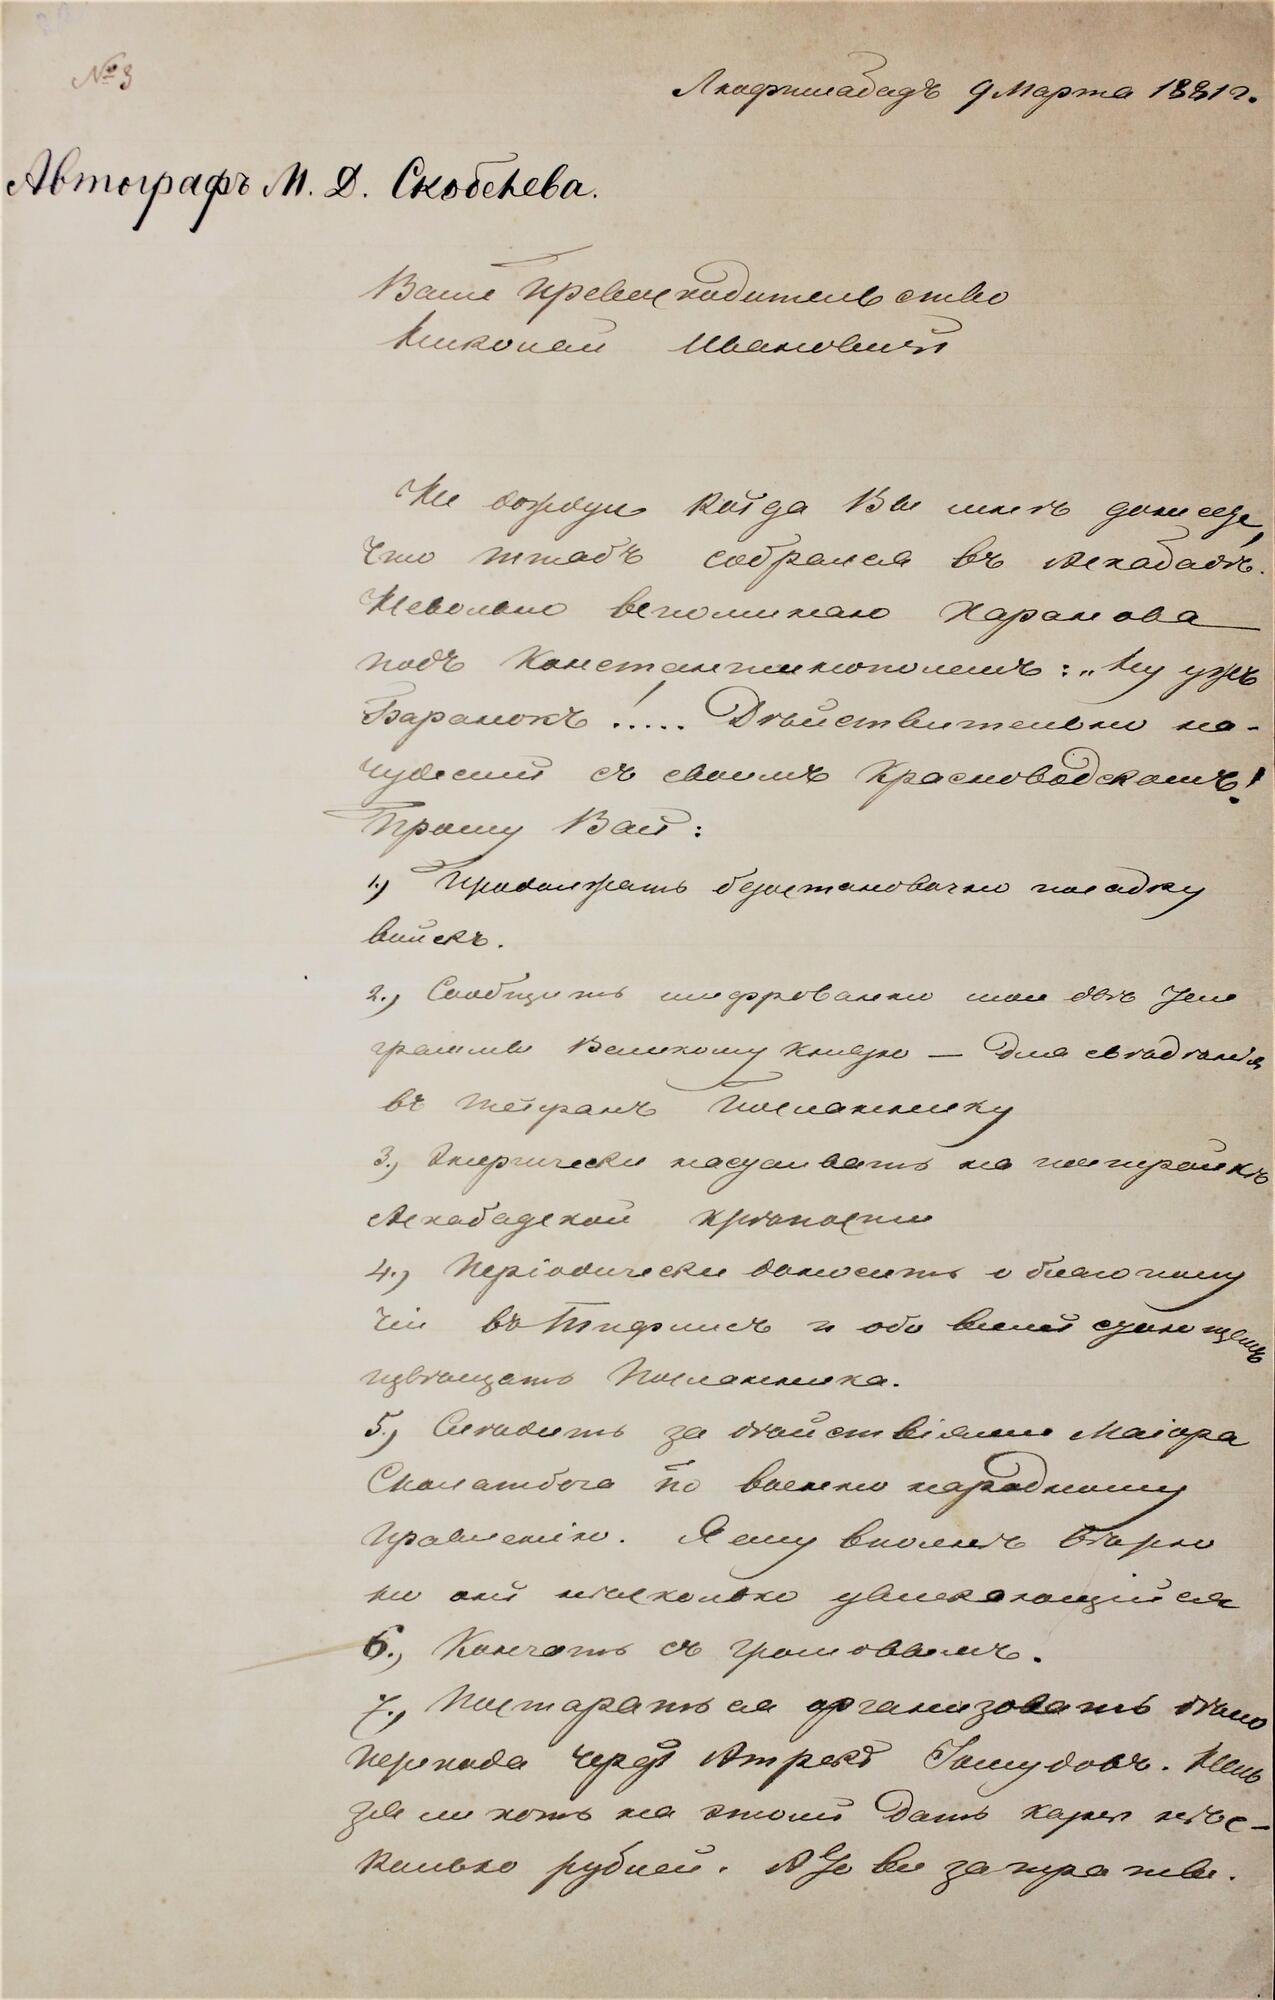 № 3
Люфтилабадъ 9 Марта 1881 г.
Автографъ М. Д. Скобелева.
Ваше Превосходительство
Николай Ивановичъ
Не дождусь когда Вы мнѣ донесете,
что штабъ собрался въ Асхабадъ.
Невольно вспоминаю Харанова
подъ Константинополемъ: „Ну ужъ
Баранокъ!..... Действительно на-
чудесилъ съ своимъ Красноводскомъ!
Прошу Васъ:
1.) Продолжать безостановочно посадку
войскъ.
2.) Сообщить шифрованно мои двѣ теле
граммы Великому Князю — для свѣдѣнія
въ Тегеранъ Посланнику
3.) Энергически настаивать на постройкѣ
Асхабадской крѣпости
4.) Періодически доносить о благополу
чіи въ Тифлисъ и обо всемъ существующемъ
извѣщать Посланника.
5.) Слѣдить за дѣйствіями Маіора
Сполатбога по военно народному
правленію. Я ему вполнѣ вѣрю
но онъ нѣсколько увлекающійся
6.) Кончать съ Громовымъ.
7.) Постараться организовать дѣло
перехода черезъ Атрекъ Іомудовъ. Нель
зя ли хоть на этомъ дать казнѣ нѣс-
колько рублей. А то все затраты.